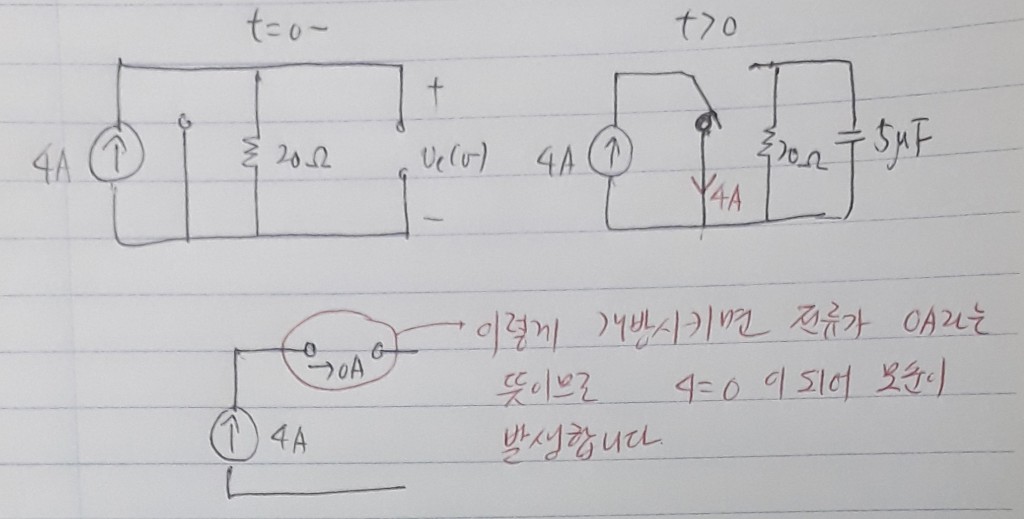 t=0-
t>0
4A
20Ω
+
Vc(0-)
-
4A
4A
20Ω
5μF
→0A
4A
이렇게 개방시키면 전류가 0A라는
뜻이므로 4=0 이 되어 모순이
발생합니다.